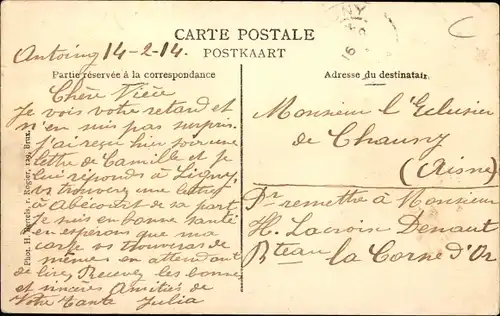 CARTE POSTALE
POSTKAART
Antoing 14-2-14.
Partie réservée à la correspondance
Adresse du destinataire
Chère Nièce
Je vois votre retard et
n'en suis pas surpris.
J'ai reçu hier soir une
lettre de Camille et je
lui réponds à Ligny,
vs trouverez une lettre
à Abécourt de sa part
Je suis en bonne santé
en esperons que ma
carte vs trouveras de
mêmes en attendant
de lire, Recevez les bonnes
et sincères Amitiés de
Votre Tante Julia
Monsieur l'Eclusier
de Chauny
(Aisne)
Pr remettre à Monsieur
H. Lacroix Denaut
Bteau la Corne d'Or
Phot. H. Bertels, r. Rogier, 129, Brux.
16
NY